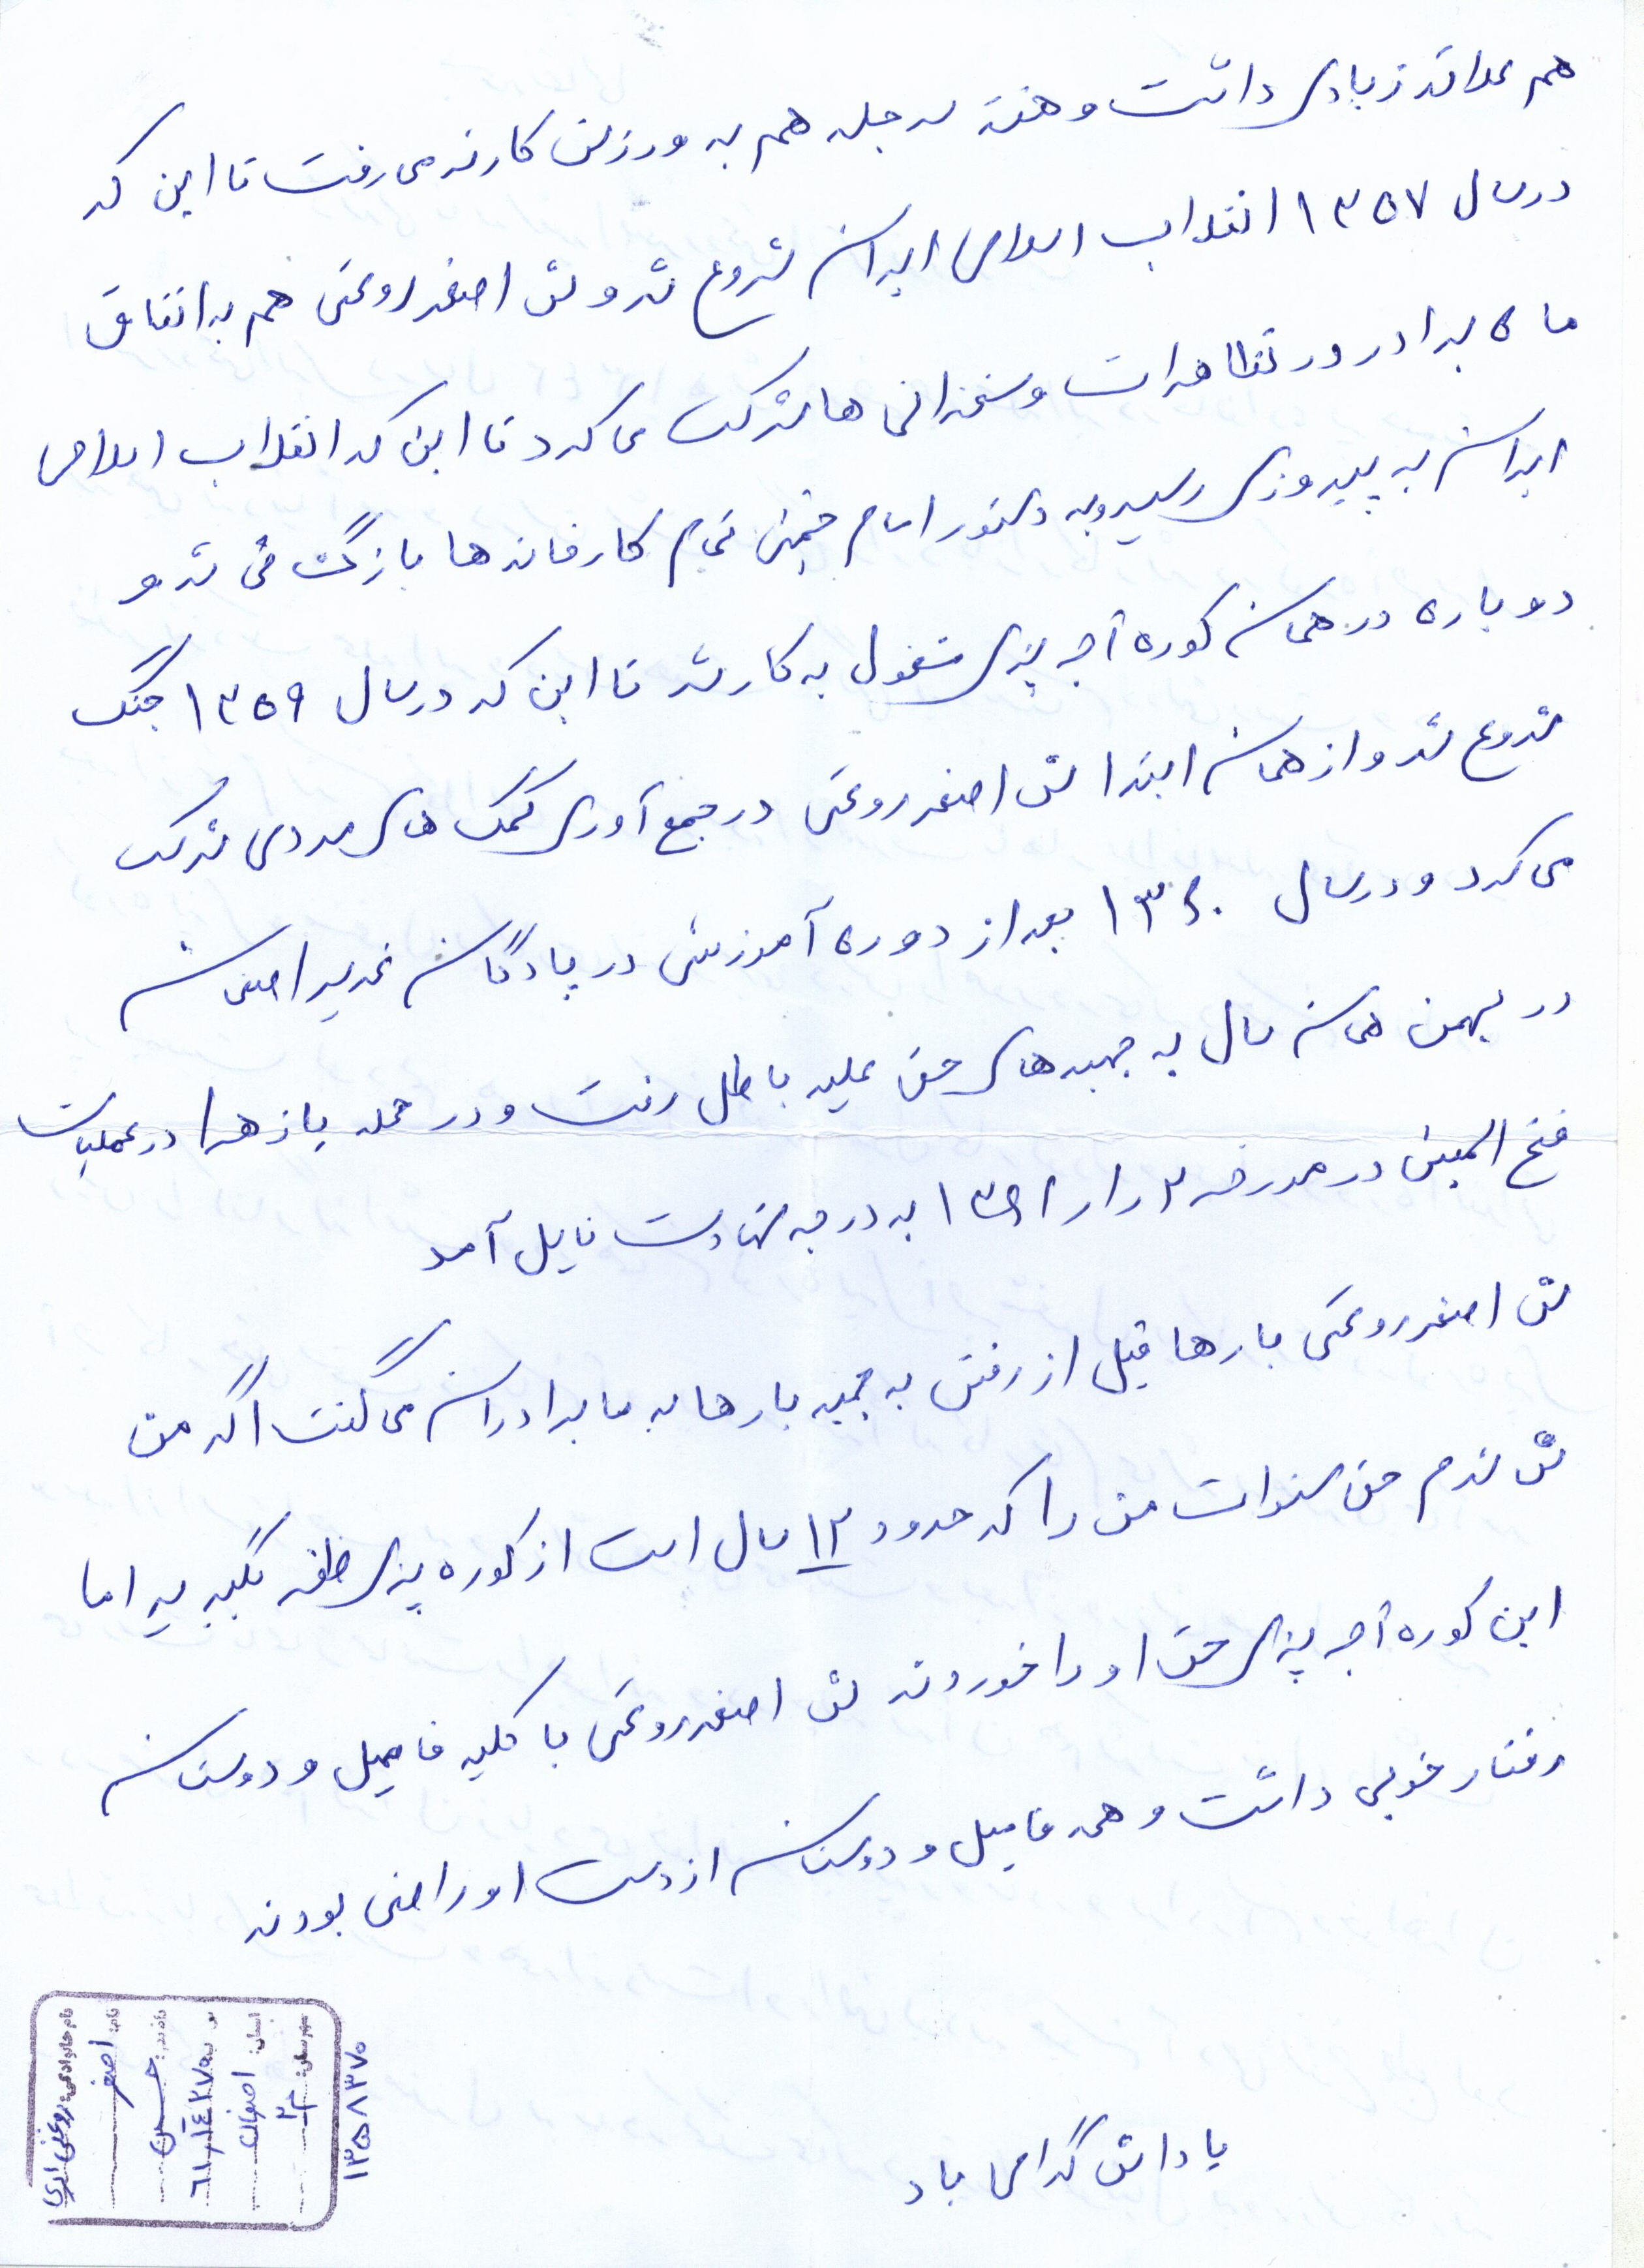 هم علاقه زیادی داشت و هفته سه جلسه هم به ورزش کاراته می رفت تا این که
در سال ۱۳۵۷ انقلاب اسلامی ایران شروع شد و ش اصغر روغنی هم به اتفاق
ما ۵ برادر در تظاهرات و سخنرانی ها شرکت می کرد تا این که انقلاب اسلامی
ایران به پیروزی رسید و به دستور امام خمینی تمام کارخانه ها بازگشایی شد و
دوباره در همان کوره آجر پزی مشغول به کار شد تا این که در سال ۱۳۵۹ جنگ
شروع شد و از همان ابتدا ش اصغر روغنی در جمع آوری کمک های مردمی شرکت
می کرد و در سال ۱۳۶۰ بعد از دوره آموزشی در پادگان غدیر اصفهان
در بهمن همان سال به جبهه های حق علیه باطل رفت و در حمله یا زهرا در عملیات
فتح المبین در مورخه ۲ ر ۱ ر ۱۳۶۱ به درجه شهادت نایل آمد
ش اصغر روغنی بارها قبل از رفتن به جبهه بارها به ما برادران می گفت اگر من
ش شدم حق سنوات من را که حدود ۱۲ سال است از کوره پزی بگیرید اما
این کوره آجر پزی حق او را خوردند ش اصغر روغنی با کلیه فامیل و دوستان
رفتار خوبی داشت و همه فامیل و دوستان از دست او راضی بودند
یاداش گرامی باد
نام خانوادگی: روغنی
نام: اصغر
نام پدر: حسن
استان: اصفهان
شهرستان:
۱۳۵۸۳۷۰